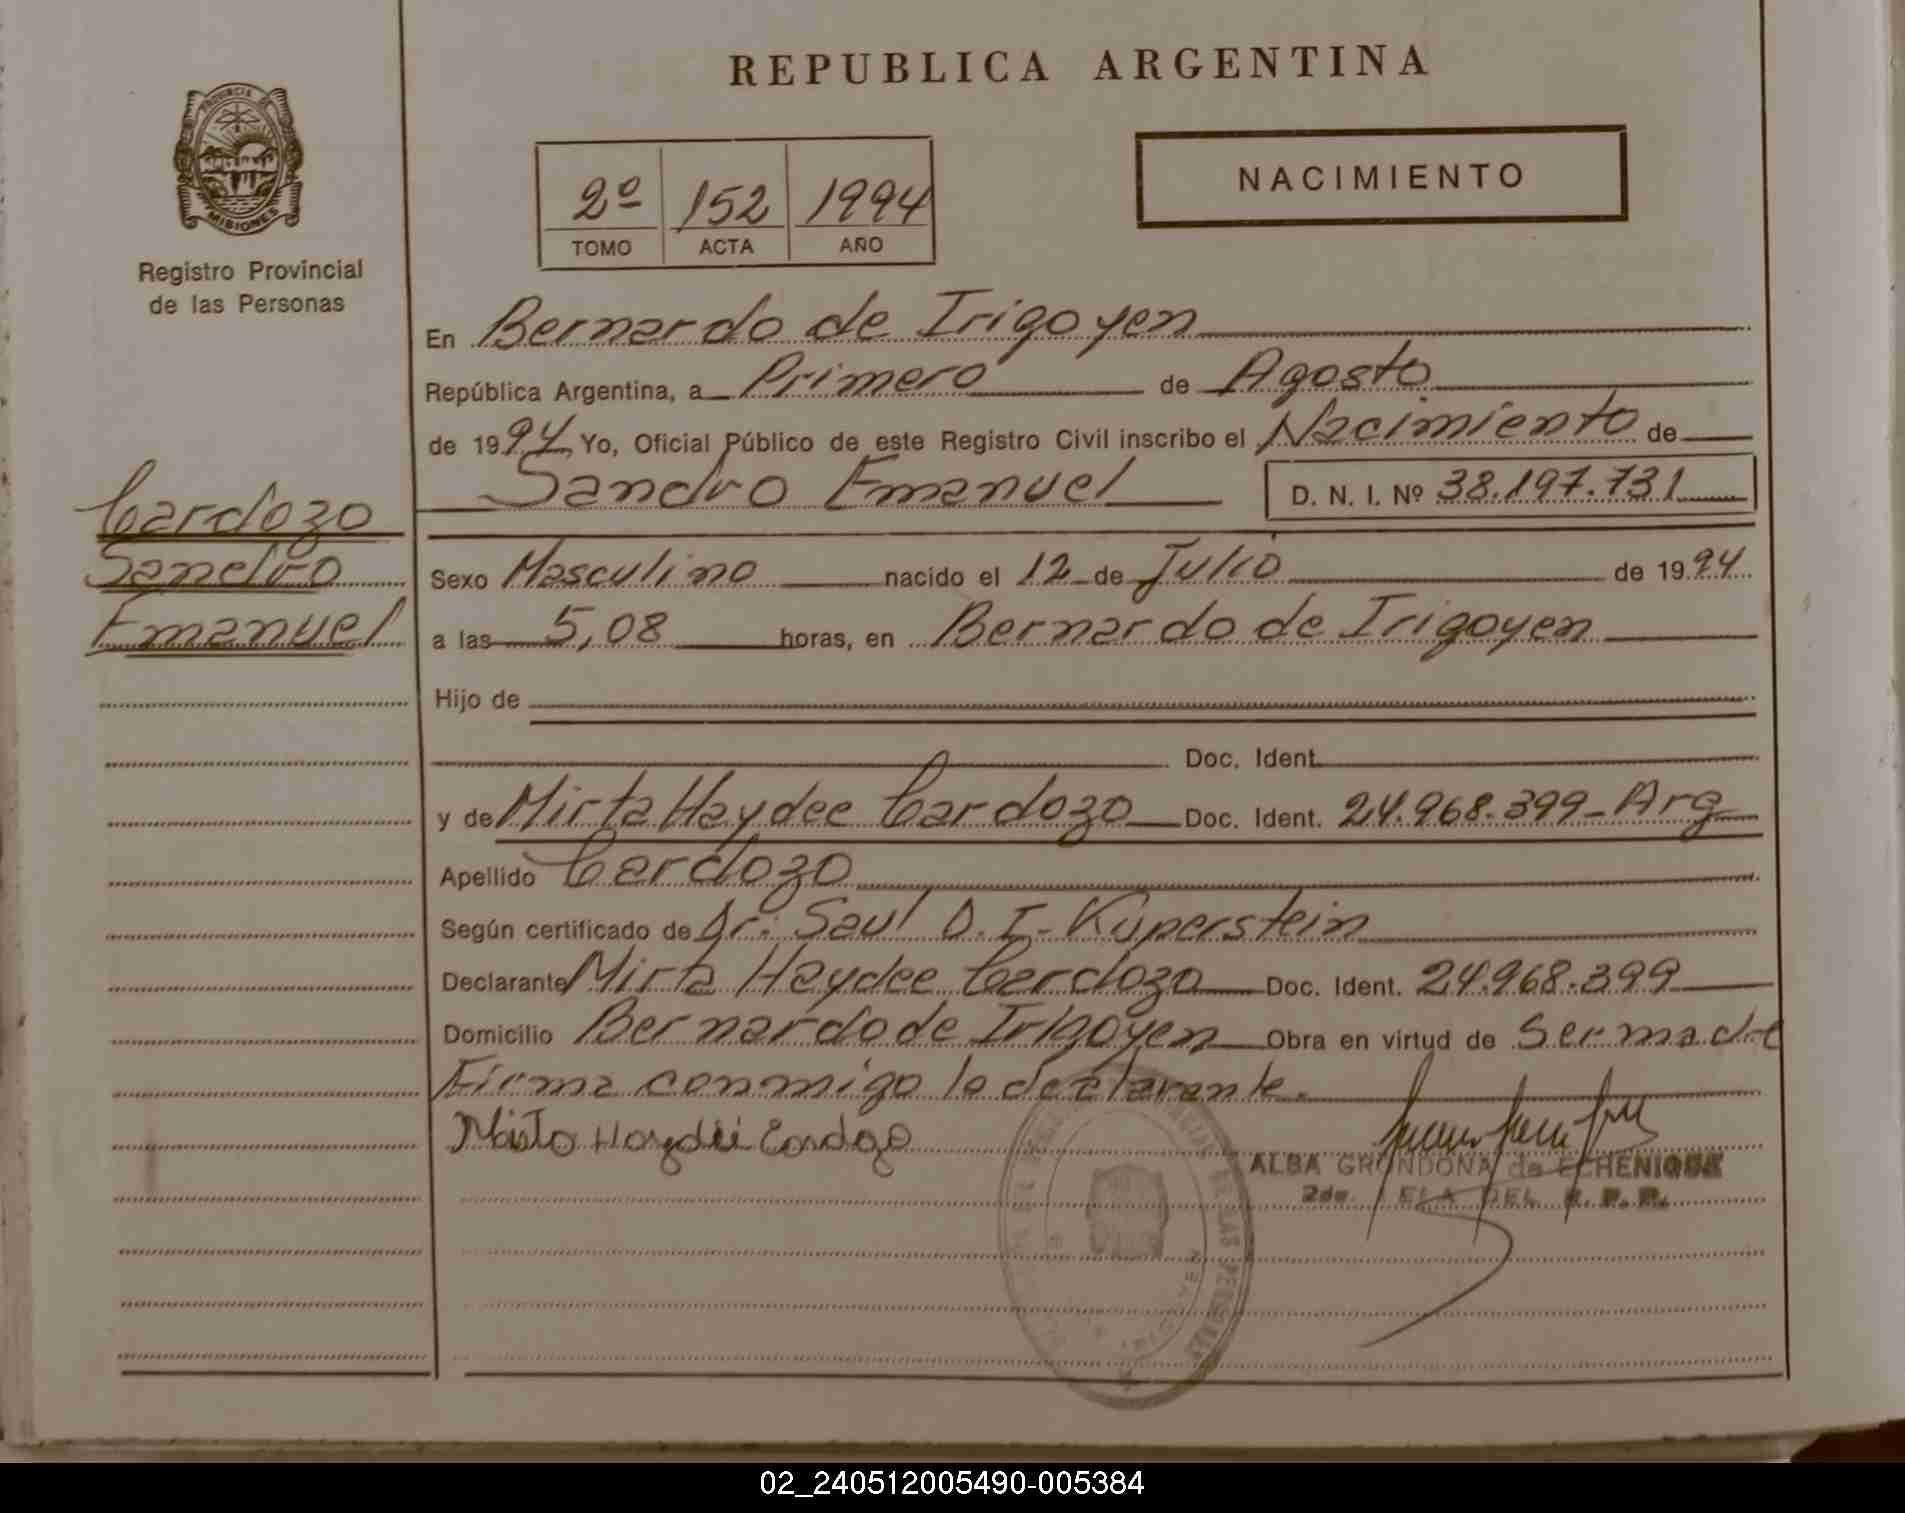 REPUBLICA ARGENTINA
PROVINCIA DE
MISIONES
Registro Provincial
de las Personas
2º 152 1994
TOMO ACTA AÑO
NACIMIENTO
En Bernardo de Irigoyen
República Argentina, a Primero de Agosto
de 1994 Yo, Oficial Público de este Registro Civil inscribo el Nacimiento de
Sandro Emanuel D. N. I. Nº 38.197.731
Cardozo
Sandro
Emanuel
Sexo Masculino nacido el 12 de Julio de 1994
a las 5,08 horas, en Bernardo de Irigoyen
Hijo de
Doc. Ident.
y de Mirta Haydee Cardozo Doc. Ident. 24.968.399- Arg
Apellido Cardozo
Según certificado de Dr. Saul D. I. Kuperstein
Declarante Mirta Haydee Cardozo Doc. Ident. 24.968.399
Domicilio Bernardo de Irigoyen Obra en virtud de Ser madre
Firma conmigo la declarante.
Mirta Haydeé Cardozo
ALBA GRONDONA de ECHENIQUE
DEL R. P. P.
DE LAS PERSONAS
02_240512005490-005384